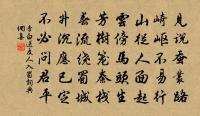 見說蠶叢路
崎嶇不易行
山從人面起
雲傍馬頭生
芳樹籠秦棧
春流繞蜀城
升沉應已定
不必問君平
李白送友人入蜀詞典
網集